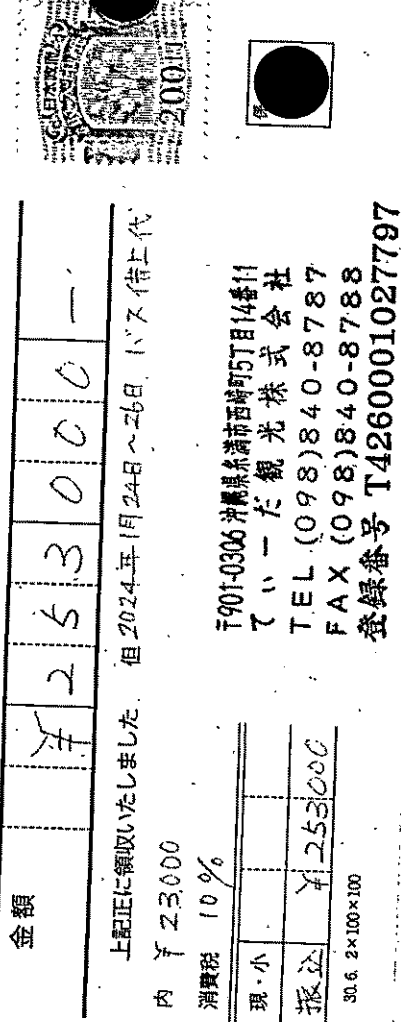 金額 ¥253000ー
上記正に領収いたしました 但 2024年1月24日~26日 バス借上代
内 ¥23,000
消費税 10%
現・小
振込 ¥253000
30.6. 2×100×100
200円
〒901-0306 沖縄県糸満市西崎町5丁目14番11
てぃーだ観光株式会社
TEL (098)840-8787
FAX (098)840-8788
登録番号 T4260001027797